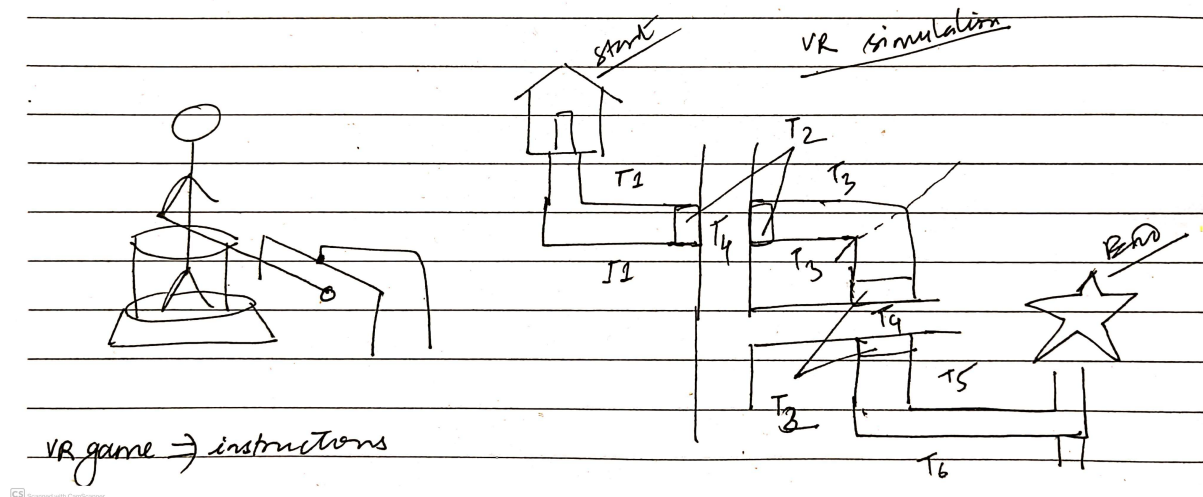 start
VR simulation
T2
T1
T3
T4
T3
I1
End
T4
T5
T3
T6
VR game ⇒ instructions
CS Scanned with CamScanner